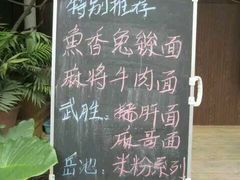 特别推荐
魚香兔絲面
麻将牛肉面
武胜:猪肝面
麻哥面
岳池:米粉系列